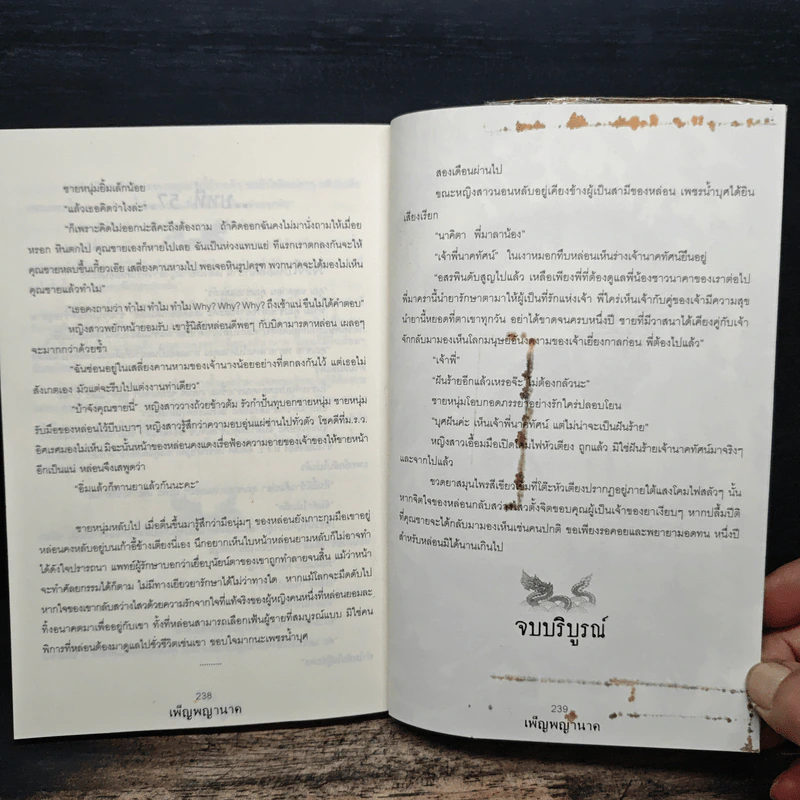 ชายหนุ่มยิ้มเล็กน้อย
"แล้วเธอคิดว่าไงล่ะ"
"ก็เพราะคิดไม่ออกน่ะสิคะถึงต้องถาม ถ้าคิดออกฉันคงไม่มานั่งถามให้เมื่อย
หรอก หินตกไป คุณชายเองก็หายไปเลย ฉันเป็นห่วงแทบแย่ ที่แรกเราตกลงกันจะให้
คุณชายหลบขึ้นเกี้ยวเอ๊ย เสลี่ยงคานหามไป พอเจอหินรูปครุฑ พวกนาคจะได้มองไม่เห็น
คุณชายแล้วทำไม"
"เธอคงถามว่า ทำไม ทำไม ทำไม Why? Why? Why? ถึงเช้าแน่ ขืนไม่ได้คำตอบ"
หญิงสาวพยักหน้ายอมรับ เขารู้นิสัยหล่อนดีพอๆ กับบิดามารดาหล่อน เผลอๆ
จะมากกว่าด้วยซ้ำ
"ฉันซ่อนอยู่ในเสลี่ยงคานหามของเจ้านางน้อยอย่างที่ตกลงกันไว้ แต่เธอไม่
สังเกตเอง มัวแต่จะรีบไปแต่งงานท่าเดียว"
"บ้าจังคุณชายนี่" หญิงสาววางถ้วยข้าวต้ม รัวกำปั้นทุบอกชายหนุ่ม ชายหนุ่ม
รับมือของหล่อนไว้บีบเบาๆ หญิงสาวรู้สึกว่าความอบอุ่นแผ่ซ่านไปทั่วตัว โชคดีที่ม.ร.ว.
อิศเรศมองไม่เห็น มิฉะนั้นหน้าของหล่อนคงแดงเรื่อฟ้องความอายของเจ้าของให้ขายหน้า
อีกเป็นแน่ หล่อนจึงเสพูดว่า
"อิ่มแล้วก็ทานยาแล้วกันนะคะ"
ชายหนุ่มหลับไป เมื่อตื่นขึ้นมารู้สึกว่ามือนุ่มๆ ของหล่อนยังเกาะกุมมือเขาอยู่
หล่อนคงหลับอยู่บนเก้าอี้ข้างเตียงนี่เอง นึกอยากเห็นใบหน้าหล่อนยามหลับก็ไม่อาจทำ
ได้ดังใจปรารถนา แพทย์ผู้รักษาบอกว่าเยื่อบุนัยน์ตาของเขาถูกทำลายจนสิ้น แม้ว่าหน้า
จะทำศัลยกรรมได้ก็ตาม ไม่มีทางเยียวยารักษาได้ไม่ว่าทางใด หากแม้โลกจะมืดดับไป
หากใจของเขากลับสว่างไสวด้วยความรักจากใจที่แท้จริงของผู้หญิงคนหนึ่งที่หล่อนยอมละ
ทิ้งอนาคตมาเพื่ออยู่กับเขา ทั้งที่หล่อนสามารถเลือกเฟ้นผู้ชายที่สมบูรณ์แบบ มิใช่คน
พิการที่หล่อนต้องมาดูแลไปชั่วชีวิตเช่นเขา ขอบใจมากนะเพชรน้ำบุศ
..........
238
เพ็ญพญานาค
สองเดือนผ่านไป
ขณะหญิงสาวนอนหลับอยู่เคียงข้างผู้เป็นสามีของหล่อน เพชรน้ำบุศได้ยิน
เสียงเรียก
"นาคิตา พี่มาลาน้อง"
"เจ้าพี่นาคทัศน์" ในเงาหมอกทึบหล่อนเห็นร่างเจ้านาคทัศน์ยืนอยู่
"อสรพินดับสูญไปแล้ว เหลือเพียงพี่ที่ต้องดูแลพี่น้องชาวนาคาของเราต่อไป
พี่มาครานี้นำยารักษาตามาให้ผู้เป็นที่รักแห่งเจ้า พี่ใคร่เห็นเจ้ากับคู่ของเจ้ามีความสุข
นำยานี้หยอดที่ตาเขาทุกวัน อย่าได้ขาดจนครบหนึ่งปี ชายที่มีวาสนาได้เคียงคู่กับเจ้า
จักกลับมามองเห็นโลกมนุษย์อันงดงามของเจ้าเยี่ยงกาลก่อน พี่ต้องไปแล้ว"
"เจ้าพี่"
"ฝันร้ายอีกแล้วเหรอจ๊ะ ไม่ต้องกลัวนะ"
ชายหนุ่มโอบกอดภรรยาอย่างรักใคร่ปลอบโยน
"บุศฝันค่ะ เห็นเจ้าพี่นาคทัศน์ แต่ไม่น่าจะเป็นฝันร้าย"
หญิงสาวเอื้อมมือเปิดโคมไฟหัวเตียง ถูกแล้ว มิใช่ฝันร้ายเจ้านาคทัศน์มาจริงๆ
และจากไปแล้ว
ขวดยาสมุนไพรสีเขียวเข้มที่โต๊ะหัวเตียงปรากฏอยู่ภายใต้แสงโคมไฟสลัวๆ นั้น
หากจิตใจของหล่อนกลับสว่างไสวตั้งจิตขอบคุณผู้เป็นเจ้าของยาเงียบๆ หากปลื้มปีติ
ที่คุณชายจะได้กลับมามองเห็นเช่นคนปกติ ขอเพียงรอคอยและพยายามอดทน หนึ่งปี
สำหรับหล่อนมิได้นานเกินไป
จบบริบูรณ์
239
เพ็ญพญานาค